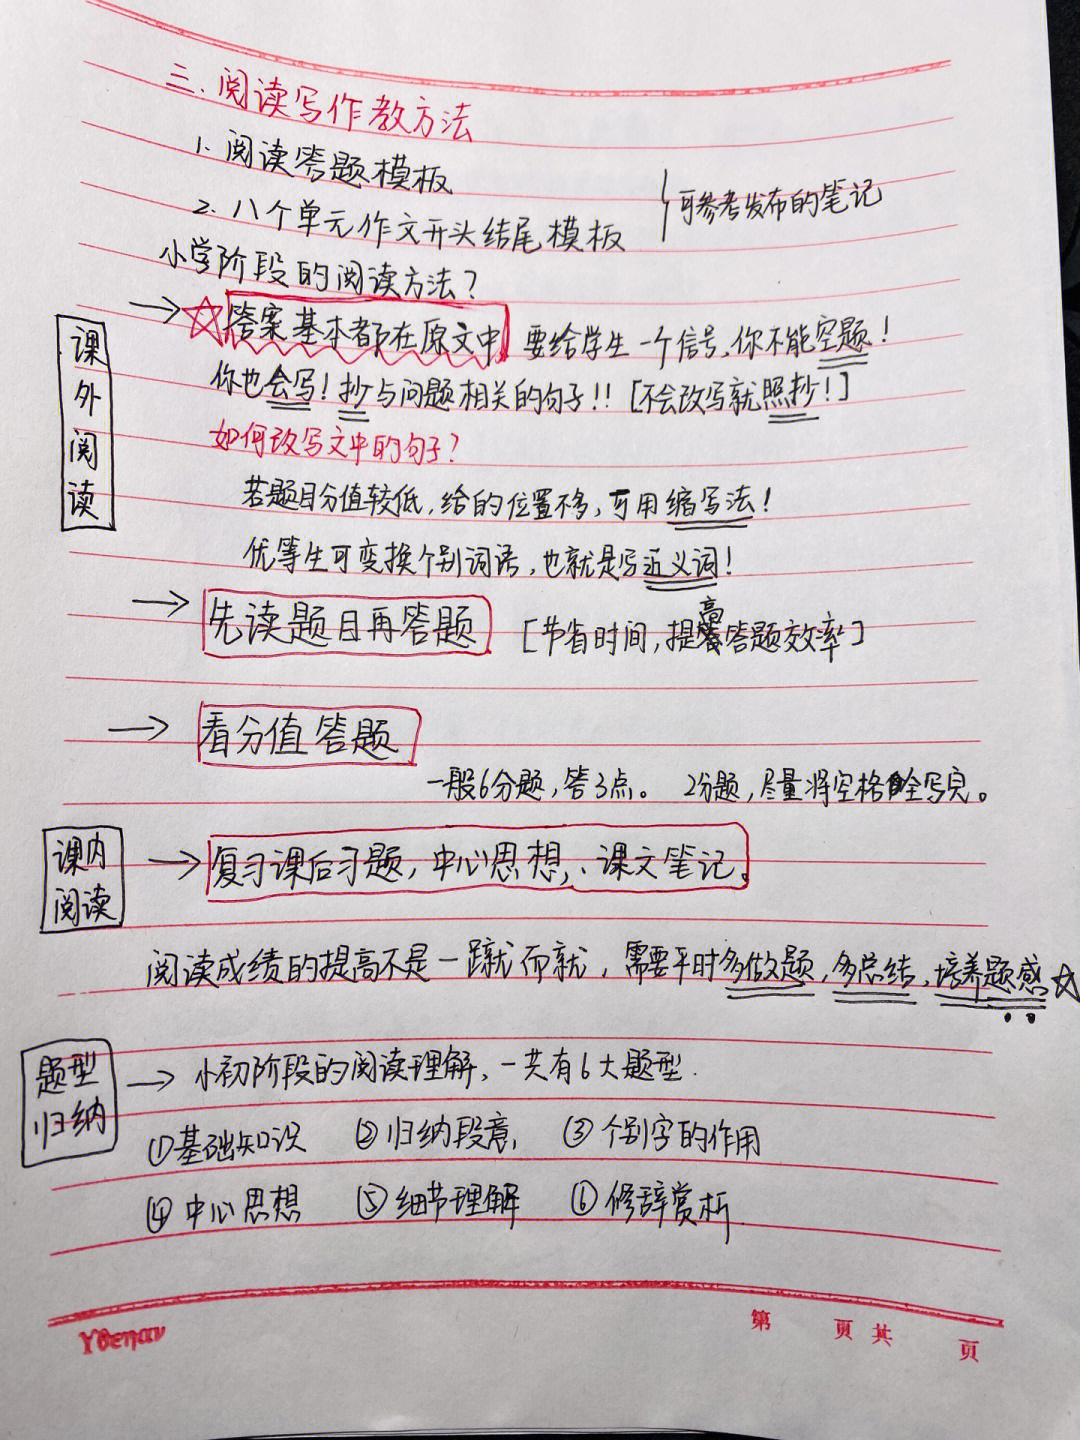 三.阅读写作教方法
1. 阅读答题模板
2. 八个单元作文开头结尾模板
可参考发布的笔记
小学阶段的阅读方法?
课外阅读
→ ☆答案基本都在原文中 要给学生一个信号,你不能空题!
你也会写!抄与问题相关的句子!![不会改写就照抄!]
如何改写文中的句子?
若题目分值较低,给的位置不多,可用缩写法!
优等生可变换个别词语,也就是写近义词!
→ 先读题目再答题 [节省时间,提高答题效率]
→ 看分值答题
一般6分题,答3点。 2分题,尽量将空格全写完。
课内阅读
→ 复习课后习题,中心思想,、课文笔记。
阅读成绩的提高不是一蹴而就,需要平时多做题,多总结,培养题感☆
题型归纳
→ 小初阶段的阅读理解,一共有6大题型.
①基础知识 ②归纳段意, ③个别字的作用
④中心思想 ⑤细节理解 ⑥修辞赏析
第 页 共 页